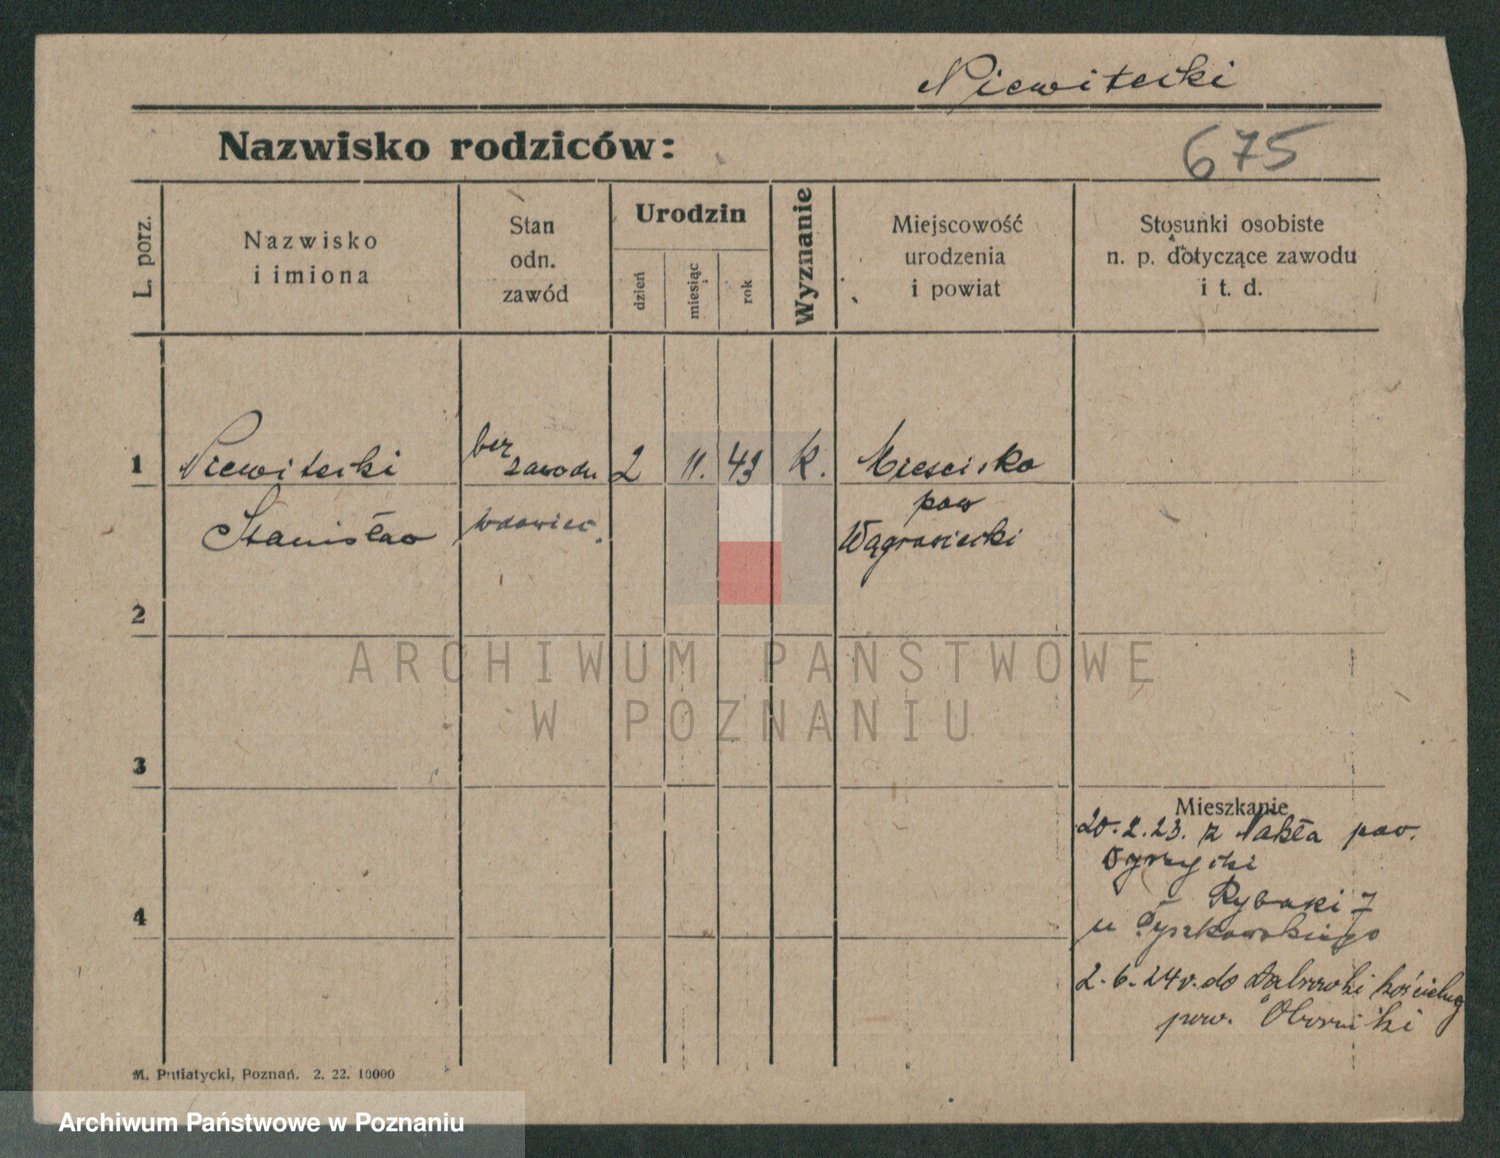 Niewitecki
Nazwisko rodziców:
675
L. porz.
Nazwisko
i imiona
Stan
odn.
zawód
Urodzin
dzień
miesiąc
rok
Wyznanie
Miejscowość
urodzenia
i powiat
Stosunki osobiste
n. p. dotyczące zawodu
i t. d.
1
Niewitecki
Stanisław
bez
zawodu
wdowiec.
2
11.
43
k.
Mieścisko
pow
Wągrowiecki
2
3
4
Mieszkanie
20.2.23. z Nakła pow.
Wyrzyski
Rybaki 7
u Tyszkowskiego
2.6.24 r. do Dabrowki kościelnej
pow. Oborniki
M. Putiatycki, Poznań. 2. 22. 10000
ARCHIWUM PAŃSTWOWE
W POZNANIU
Archiwum Państwowe w Poznaniu